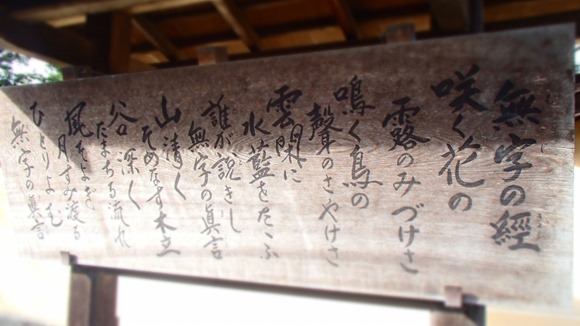 無字の經
咲く花の
露のみづけさ
鳴く鳥の
聲のさやけさ
雲閑に
水藍をたゝふ
誰が説きし
無字の真言
山清く
そめなす木立
谷深く
たまちる流れ
風そよぎ
月すみ渡る
ひとりよむ
無字の真言